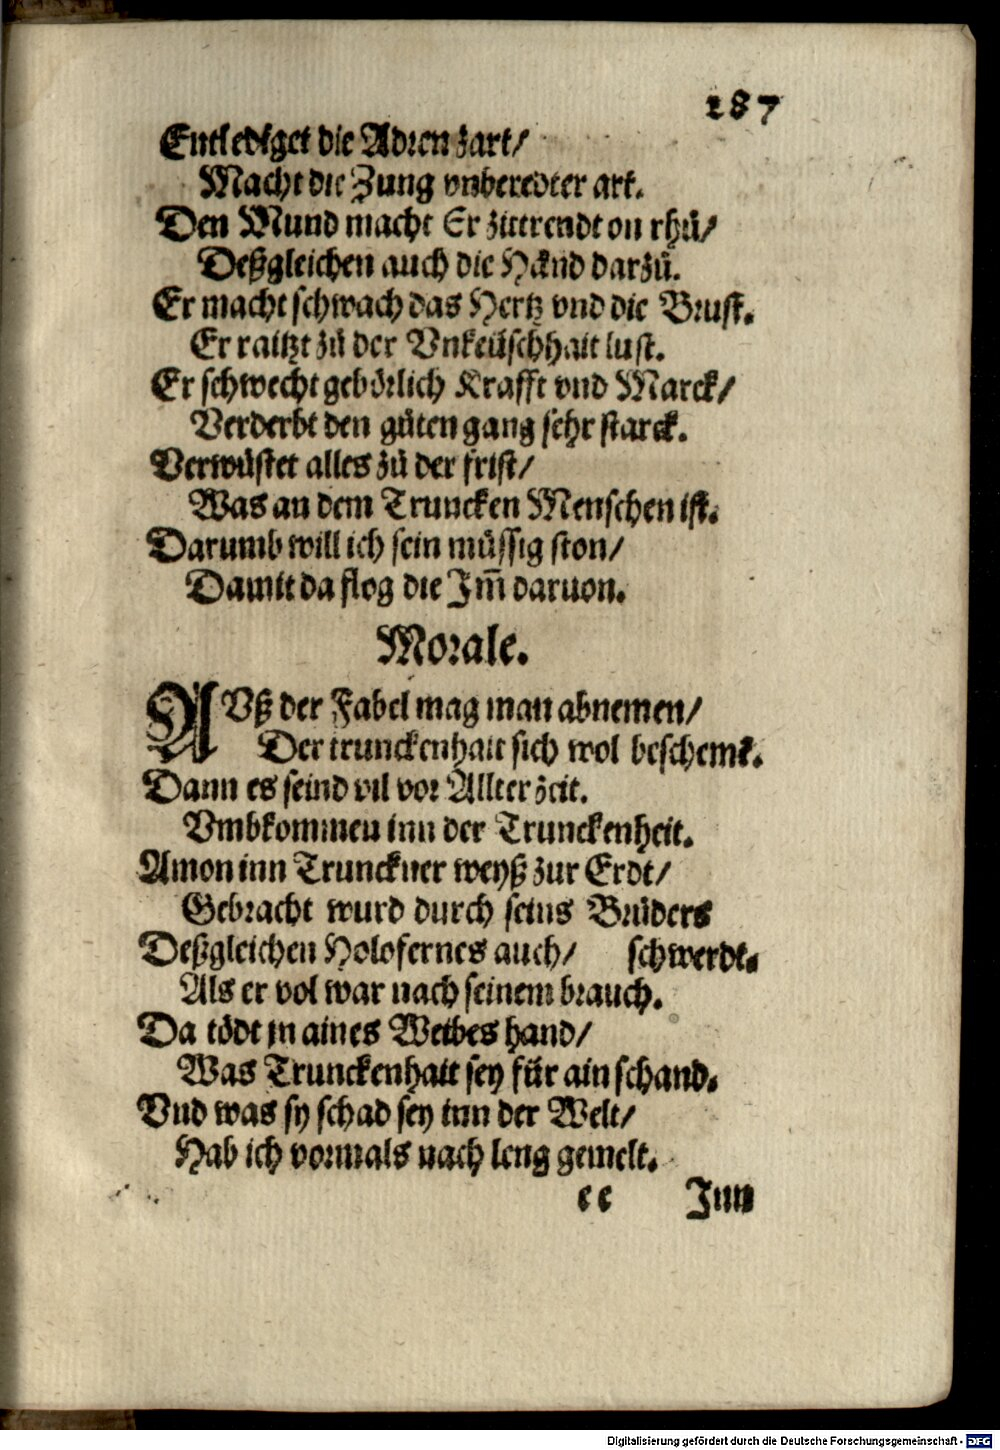 187
Entlediget die Adren zart/
Macht die Zung vnberedter art.
Den Mund macht Er zittrendt on rhů/
Deßgleichen auch die Hånd darzů.
Er macht schwach das Hertz vnd die Brust.
Er raitzt zů der Vnkeüschhait lust.
Er schwecht gebörlich Krafft vnd Marck/
Verderbt den gůten gang sehr starck.
Verwüstet alles zů der frist/
Was an dem Truncken Menschen ist.
Darumb will ich sein müssig ston/
Damit da flog die Jm̃ daruon.
Morale.
AVß der Fabel mag man abnemen/
Der trunckenhait sich wol beschemt.
Dann es seind vil vor Allter zeit.
Vmbkommen inn der Trunckenheit.
Amon inn Trunckner weyß zur Erdt/
Gebracht wurd durch seins Brůders
Deßgleichen Holofernes auch/ schwerdt.
Als er vol war nach seinem brauch.
Da tödt jn aines Weibes hand/
Was Trunckenhait sey für ain schand.
Vnd was sy schad sey inn der Welt/
Hab ich vormals nach leng gemelt.
cc Jnn
Digitalisierung gefördert durch die Deutsche Forschungsgemeinschaft - DFG